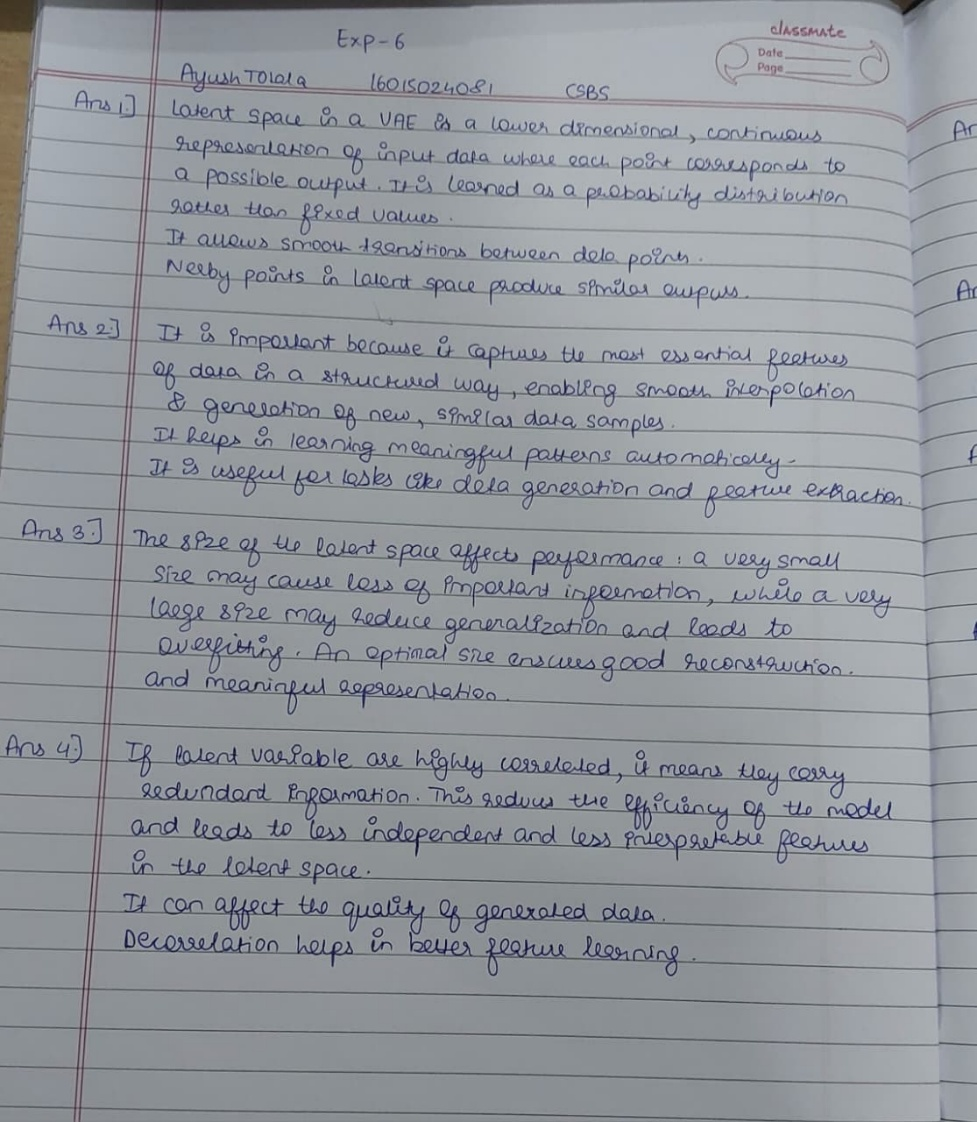 Exp-6
classmate
Date
Page
Ayush Tolala 16015024081 CSBS
Ans 1] Latent space in a VAE is a lower dimensional, continuous
representation of input data where each point corresponds to
a possible output. It is learned as a probability distribution
rather than fixed values.
It allows smooth transitions between data points.
Nerby points in latent space produce similar outputs.
Ans 2] It is important because it captures the most essential features
of data in a structured way, enabling smooth interpolation
& generation of new, similar data samples.
It helps in learning meaningful patterns automatically.
It is useful for tasks like data generation and feature extraction.
Ans 3.] The size of the latent space affects performance: a very small
size may cause loss of important information, while a very
large size may reduce generalization and leads to
overfitting. An optimal size ensures good reconstruction.
and meaningful representation.
Ans 4.] If latent variable are highly correleted, it means they carry
redundant information. This reduces the efficiency of the model
and leads to less independent and less interpretable features
in the latent space.
It can affect the quality of generated data.
Decorrelation helps in better feature learning.
An
An